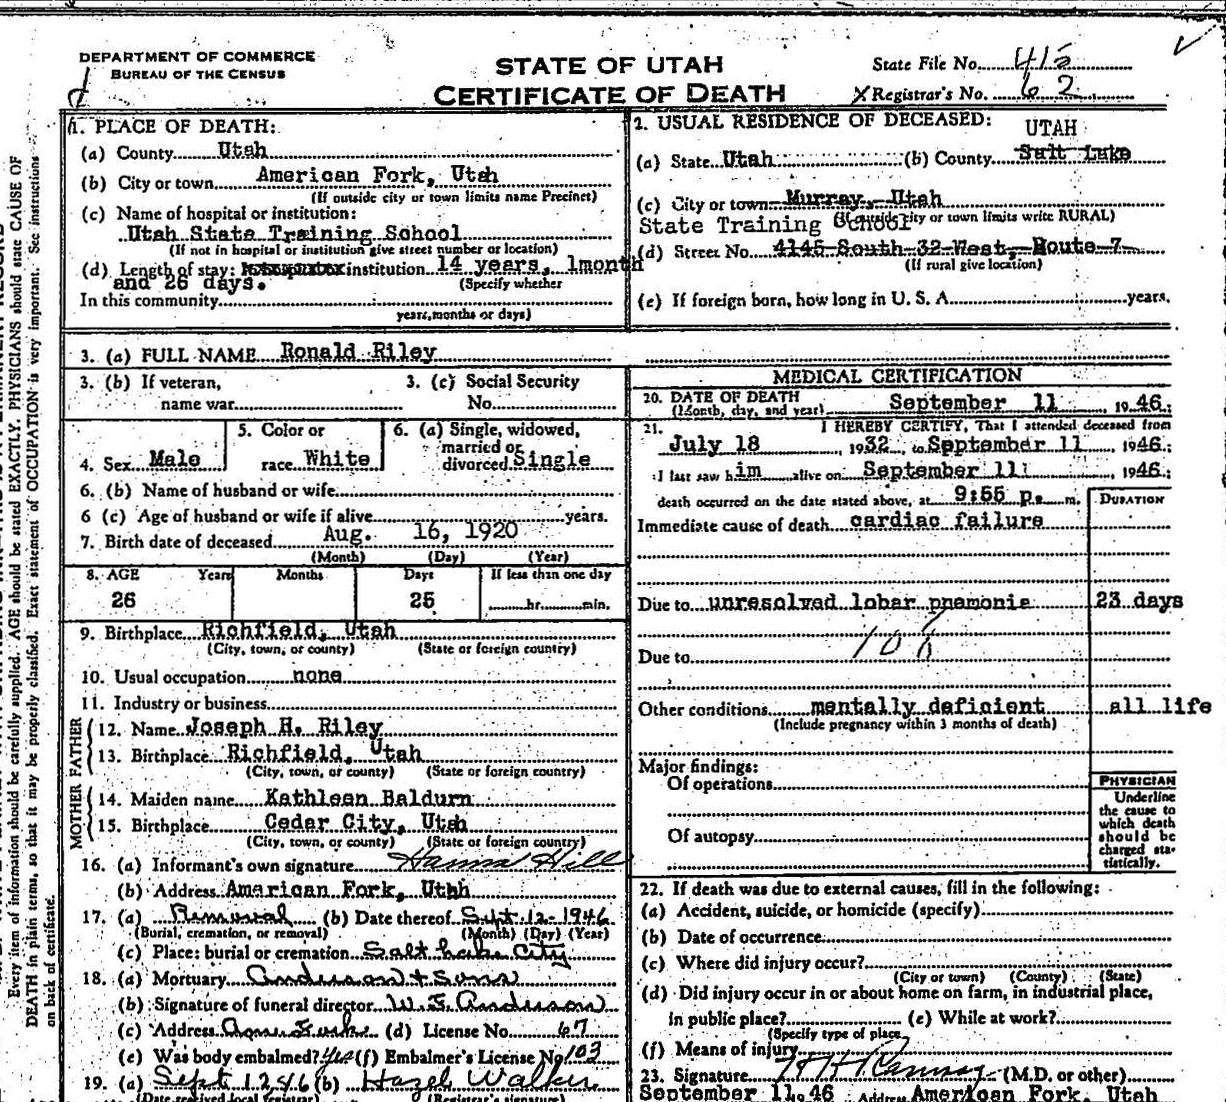 DEPARTMENT OF COMMERCE
BUREAU OF THE CENSUS
STATE OF UTAH
CERTIFICATE OF DEATH
State File No.
Registrar's No. 62
1. PLACE OF DEATH:
(a) County Utah
(b) City or town American Fork, Utah
(If outside city or town limits name Precinct)
(c) Name of hospital or institution:
Utah State Training School
(If not in hospital or institution give street number or location)
(d) Length of stay: institution 14 years, 1month
and 26 days. (Specify whether
In this community
years, months or days)
2. USUAL RESIDENCE OF DECEASED:
UTAH
(a) State Utah (b) County Salt Lake
(c) City or town Murray, Utah
State Training School (If outside city or town limits write RURAL)
(d) Street No. 4145 South 32 West, Route 7
(If rural give location)
(e) If foreign born, how long in U. S. A. years.
3. (a) FULL NAME Ronald Riley
3. (b) If veteran, 3. (c) Social Security
name war No.
4. Sex Male
5. Color or
race White
6. (a) Single, widowed,
married or
divorced Single
6. (b) Name of husband or wife
6 (c) Age of husband or wife if alive years.
7. Birth date of deceased Aug. 16, 1920
(Month) (Day) (Year)
8. AGE Years Months Days If less than one day
26 25 hr. min.
9. Birthplace Richfield, Utah
(City, town, or county) (State or foreign country)
10. Usual occupation none
11. Industry or business
FATHER
12. Name Joseph H. Riley
13. Birthplace Richfield, Utah
(City, town, or county) (State or foreign country)
MOTHER
14. Maiden name Kathleen Baldurn
15. Birthplace Cedar City, Utah
(City, town, or county) (State or foreign country)
16. (a) Informant's own signature Hanna Hill
(b) Address American Fork, Utah
17. (a) Removal (b) Date thereof Sept. 12-1946
(Burial, cremation, or removal) (Month) (Day) (Year)
(c) Place: burial or cremation Salt Lake City
18. (a) Mortuary Anderson & Sons
(b) Signature of funeral director W. E. Anderson
(c) Address Amer Fork (d) License No. 67
(e) Was body embalmed? Yes (f) Embalmer's License No 103
19. (a) Sept 12 46 (b) Hazel Walker
(Date received local registrar) (Registrar's signature)
MEDICAL CERTIFICATION
20. DATE OF DEATH
(Month, day, and year) September 11, 1946;
21. I HEREBY CERTIFY, That I attended deceased from
July 18, 1932, to September 11, 1946;
I last saw him alive on September 11, 1946;
death occurred on the date stated above, at 9:55 p. m.
DURATION
Immediate cause of death cardiac failure
Due to unresolved lobar pnemonia 23 days
Due to
Other conditions mentally deficient all life
(Include pregnancy within 3 months of death)
Major findings:
Of operations
Of autopsy
PHYSICIAN
Underline
the cause to
which death
should be
charged sta-
tistically.
22. If death was due to external causes, fill in the following:
(a) Accident, suicide, or homicide (specify)
(b) Date of occurrence
(c) Where did injury occur?
(City or town) (County) (State)
(d) Did injury occur in or about home on farm, in industrial place,
in public place? (e) While at work?
(Specify type of place
(f) Means of injury
23. Signature (M.D. or other)
September 11, 46 Address American Fork, Utah
Every item of information should be carefully supplied. AGE should be stated EXACTLY. PHYSICIANS should state CAUSE OF
DEATH in plain terms, so that it may be properly classified. Exact statement of OCCUPATION is very important. See instructions
on back of certificate.